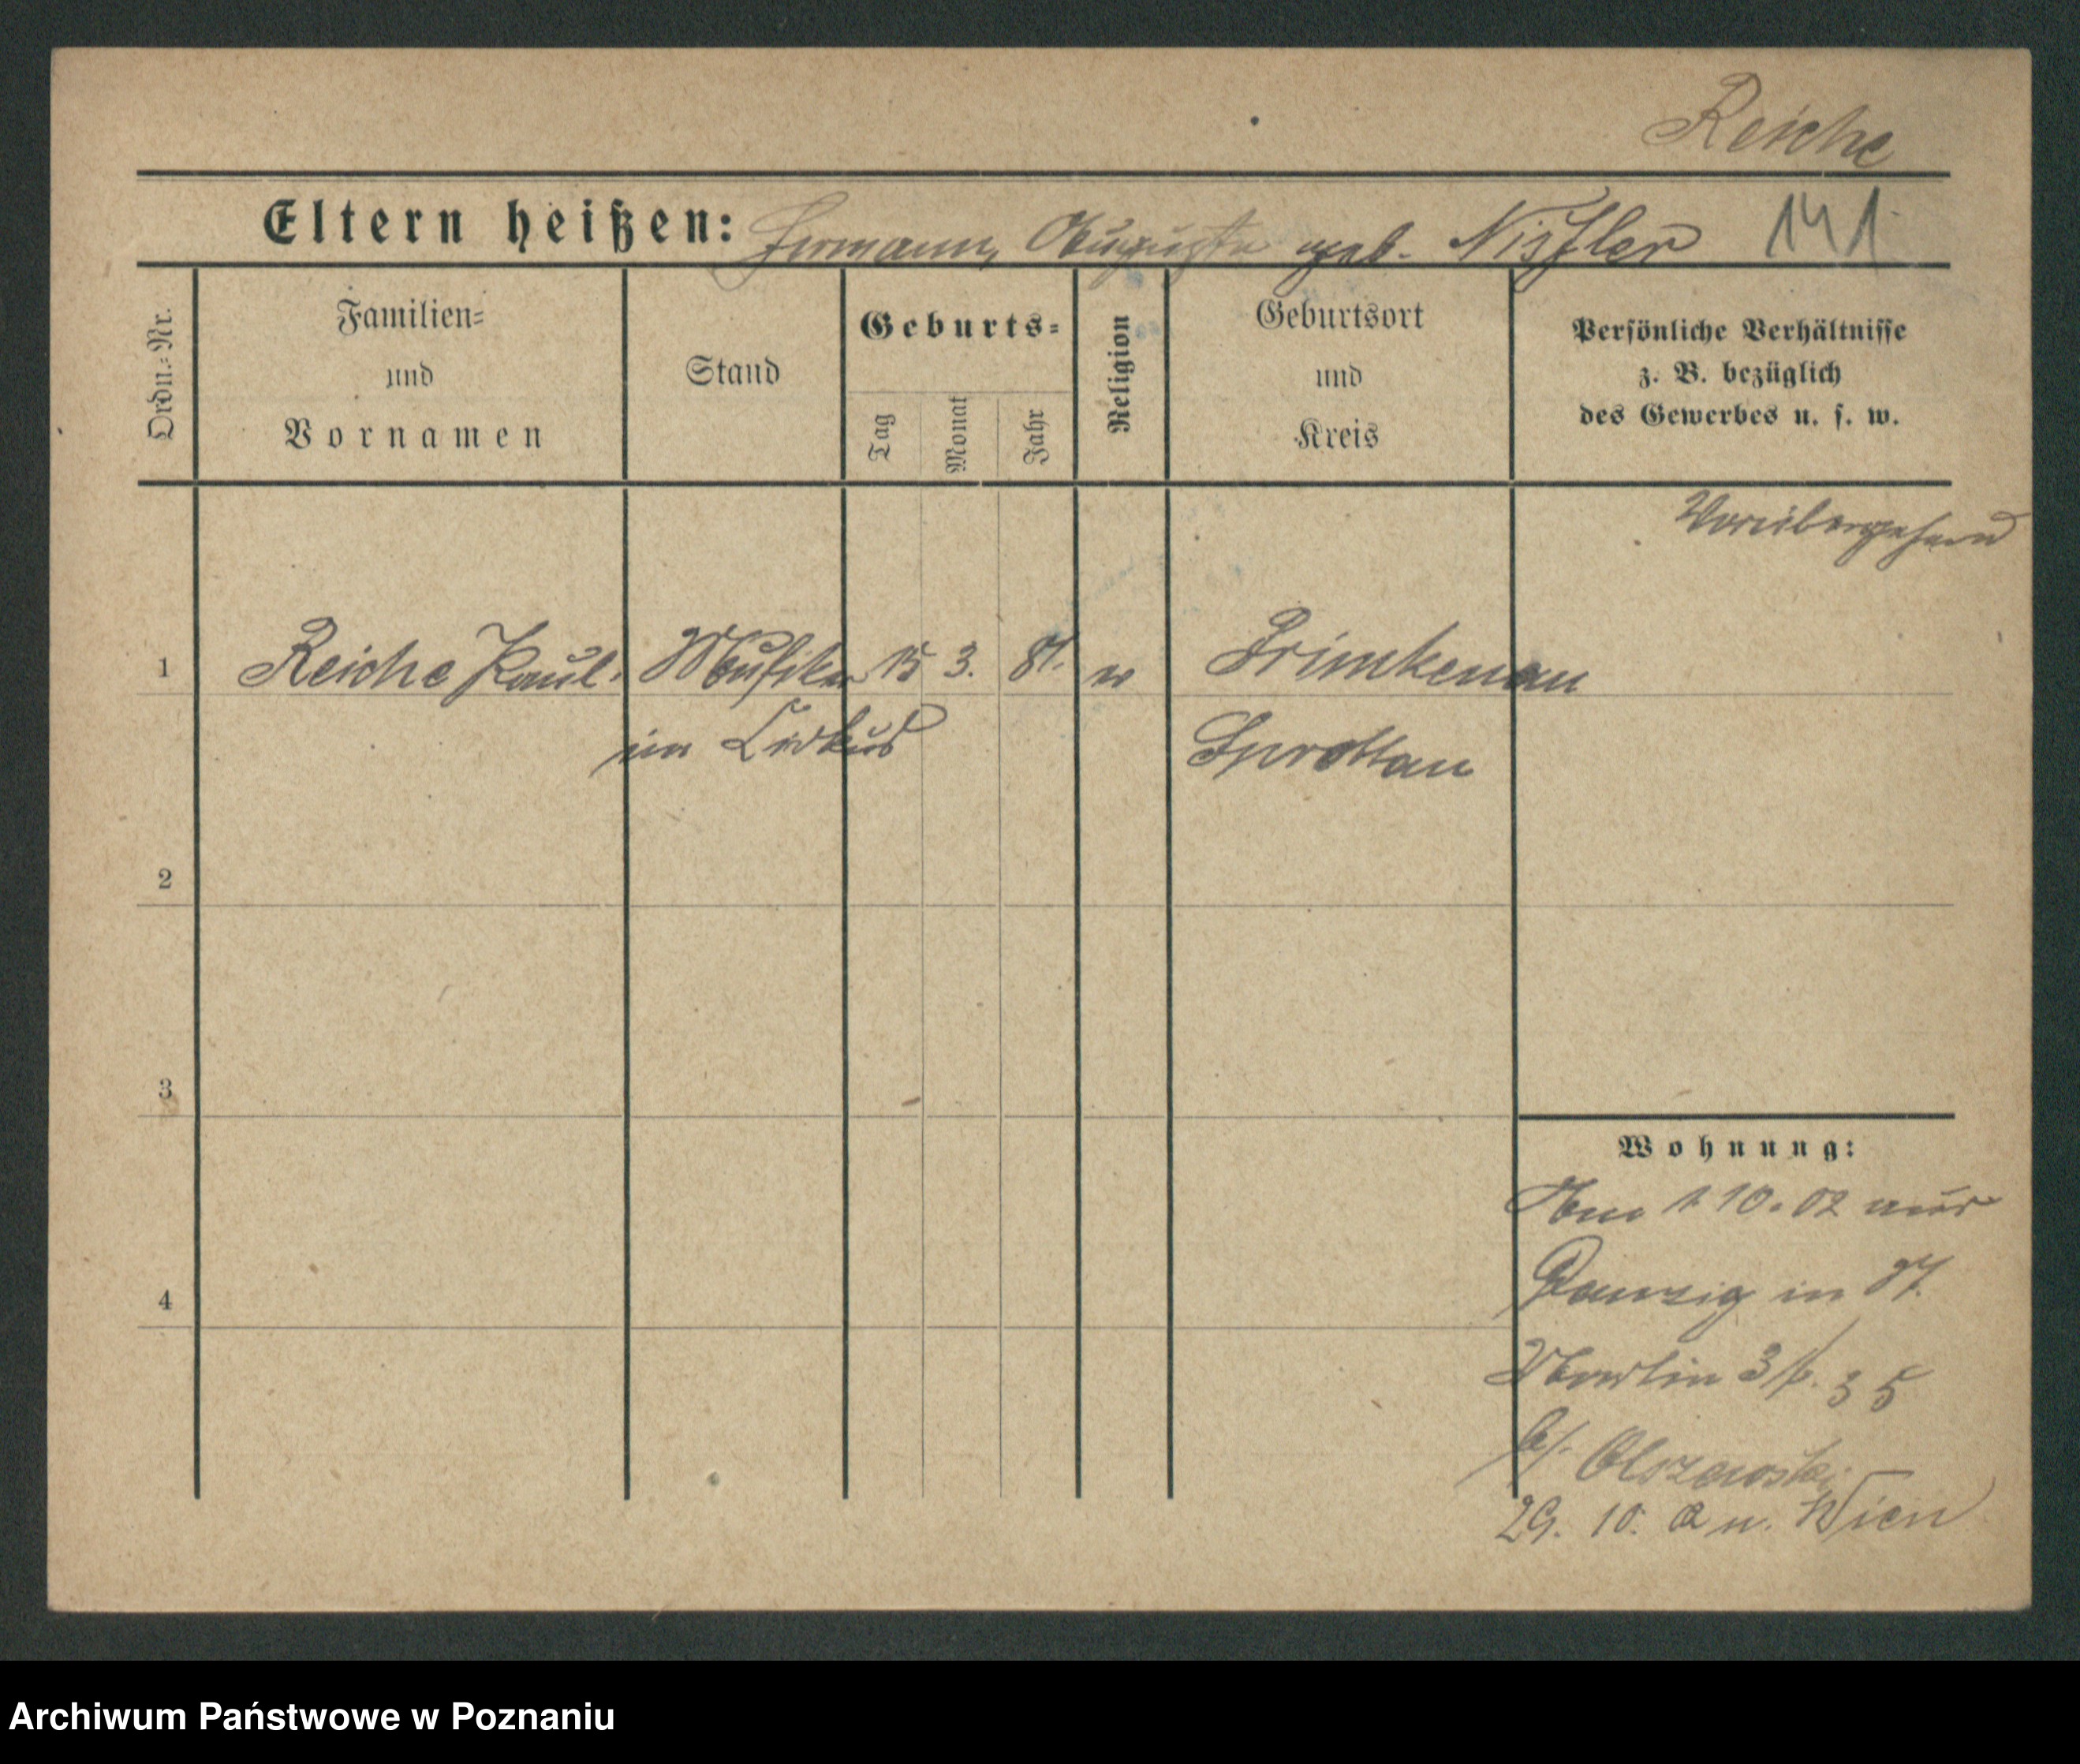 Reiche
Eltern heißen: Hermann, Auguste geb. 141
Ordn.-Nr.
Familien-
und
Vornamen
Stand
Geburts-
Tag
Monat
Jahr
Religion
Geburtsort
und
Kreis
Persönliche Verhältnisse
z. B. bezüglich
des Gewerbes u. s. w.
Vorübergehend
1 Reiche Paul. Musiker 15 3. 81. Primkenau
im Cirkus Sprottau
2
3
4
Wohnung:
Am 1 10. 02 aus
Danzig in
3 35
b/. Olszewski
29. 10. 02 n. Wien
Archiwum Państwowe w Poznaniu